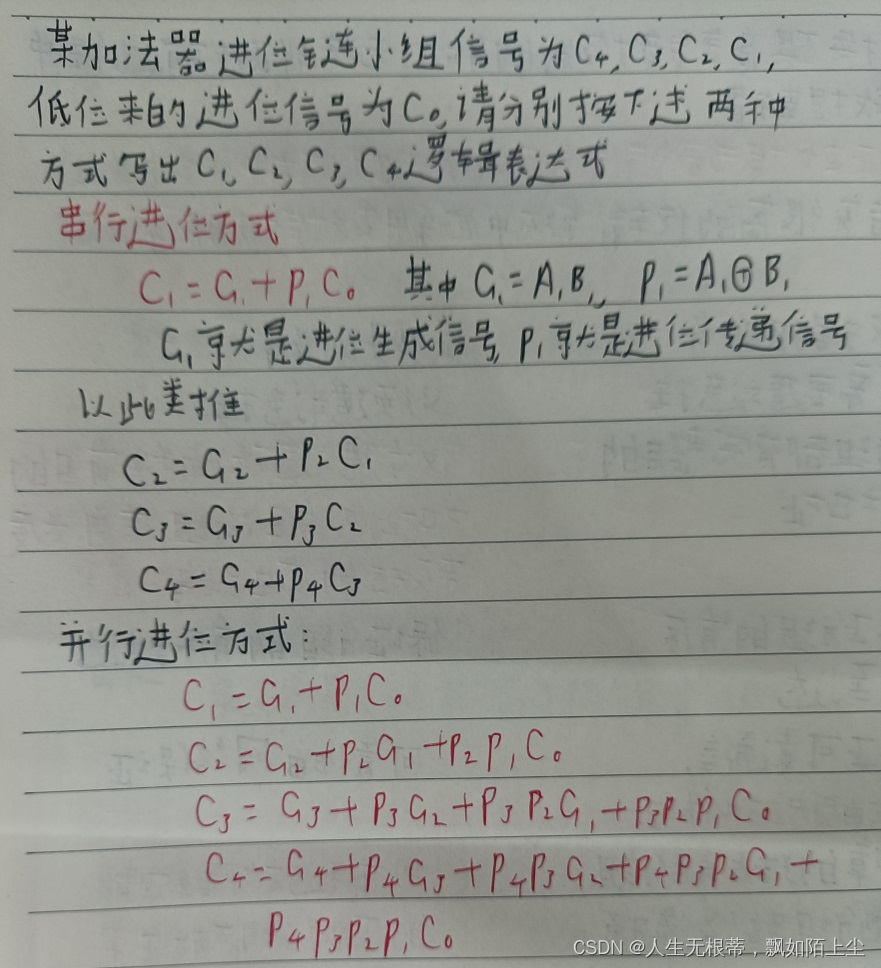 某加法器进位链小组信号为C₄,C₃,C₂,C₁,
低位来的进位信号为C₀,请分别按下述两种
方式写出C₁,C₂,C₃,C₄逻辑表达式
串行进位方式
C₁=G₁+P₁C₀ 其中G₁=A₁B₁, P₁=A₁⊕B₁
G₁就是进位生成信号,P₁就是进位传递信号
以此类推
C₂=G₂+P₂C₁
C₃=G₃+P₃C₂
C₄=G₄+P₄C₃
并行进位方式:
C₁=G₁+P₁C₀
C₂=G₂+P₂G₁+P₂P₁C₀
C₃=G₃+P₃G₂+P₃P₂G₁+P₃P₂P₁C₀
C₄=G₄+P₄G₃+P₄P₃G₂+P₄P₃P₂G₁+
P₄P₃P₂P₁C₀
CSDN @人生无根蒂,飘如陌上尘